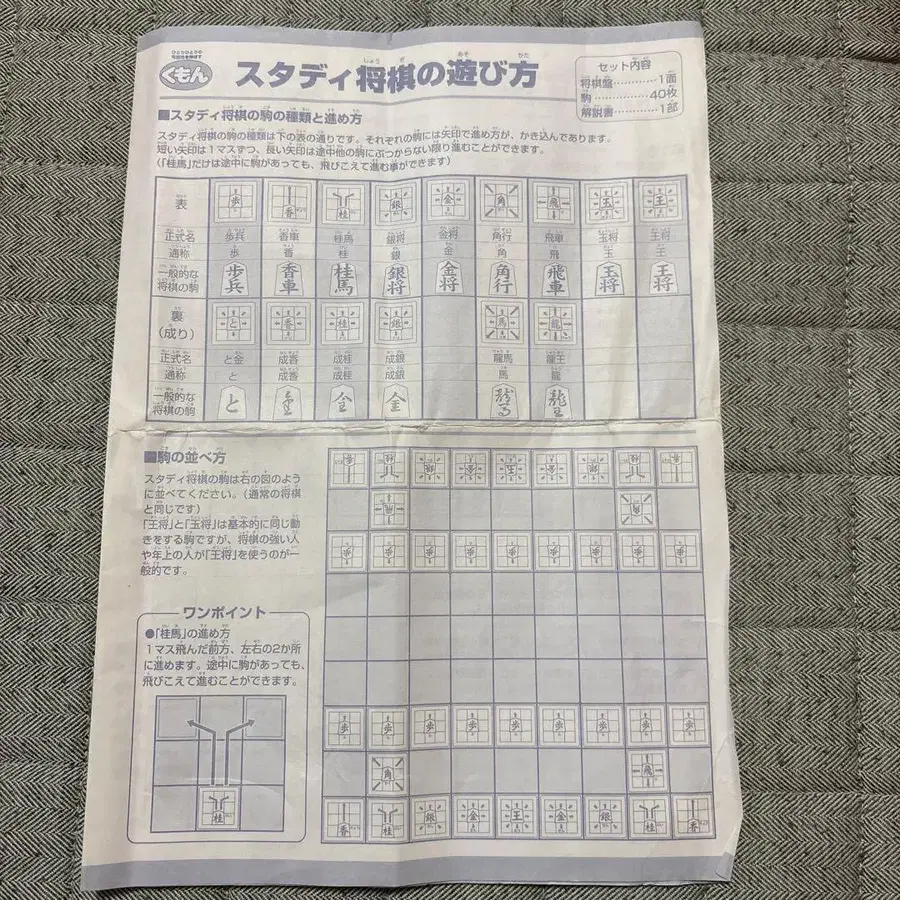 くもん
スタディ将棋の遊び方
セット内容
将棋盤…………1面
駒……………40枚
解説書…………1部
■スタディ将棋の駒の種類と進め方
スタディ将棋の駒の種類は下の表の通りです。それぞれの駒には矢印で進め方が、かき込んであります。
短い矢印は1マスずつ、長い矢印は途中他の駒にぶつからない限り進むことができます。
(「桂馬」だけは途中に駒があっても、飛びこえて進む事ができます)
表 歩 香 桂 銀 金 角 飛 玉 王
正式名 歩兵 香車 桂馬 銀将 金将 角行 飛車 玉将 王将
通称 歩 香 桂 銀 金 角 飛 玉 王
一般的な
将棋の駒 歩兵 香車 桂馬 銀将 金将 角行 飛車 玉将 王将
裏
(成り) と 香 桂 銀 馬 龍
正式名 と金 成香 成桂 成銀 龍馬 龍王
通称 と 成香 成桂 成銀 馬 龍
一般的な
将棋の駒 と 全 龍馬 龍王
■駒の並べ方
スタディ将棋の駒は右の図のよう
に並べてください。(通常の将棋
と同じです)
「王将」と「玉将」は基本的に同じ動
きをする駒ですが、将棋の強い人
や年上の人が「王将」を使うのが一
般的です。
香 桂 銀 金 玉 金 銀 桂 香
飛 角
歩 歩 歩 歩 歩 歩 歩 歩 歩
歩 歩 歩 歩 歩 歩 歩 歩 歩
角 飛
香 桂 銀 金 王 金 銀 桂 香
ワンポイント
●「桂馬」の進め方
1マス飛んだ前方、左右の2か所
に進めます。途中に駒があっても、
飛びこえて進むことができます。
桂